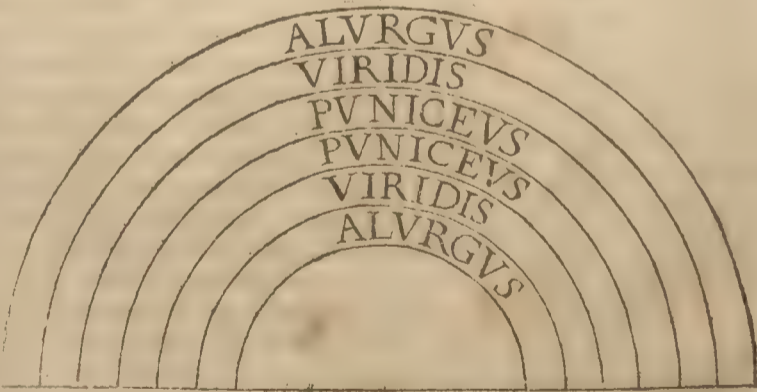 ALVRGVS
VIRIDIS
PVNICEVS
PVNICEVS
VIRIDIS
ALVRGVS